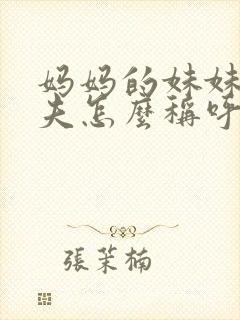 妈妈的妹妹
夫怎麼稱呼
張茉楠